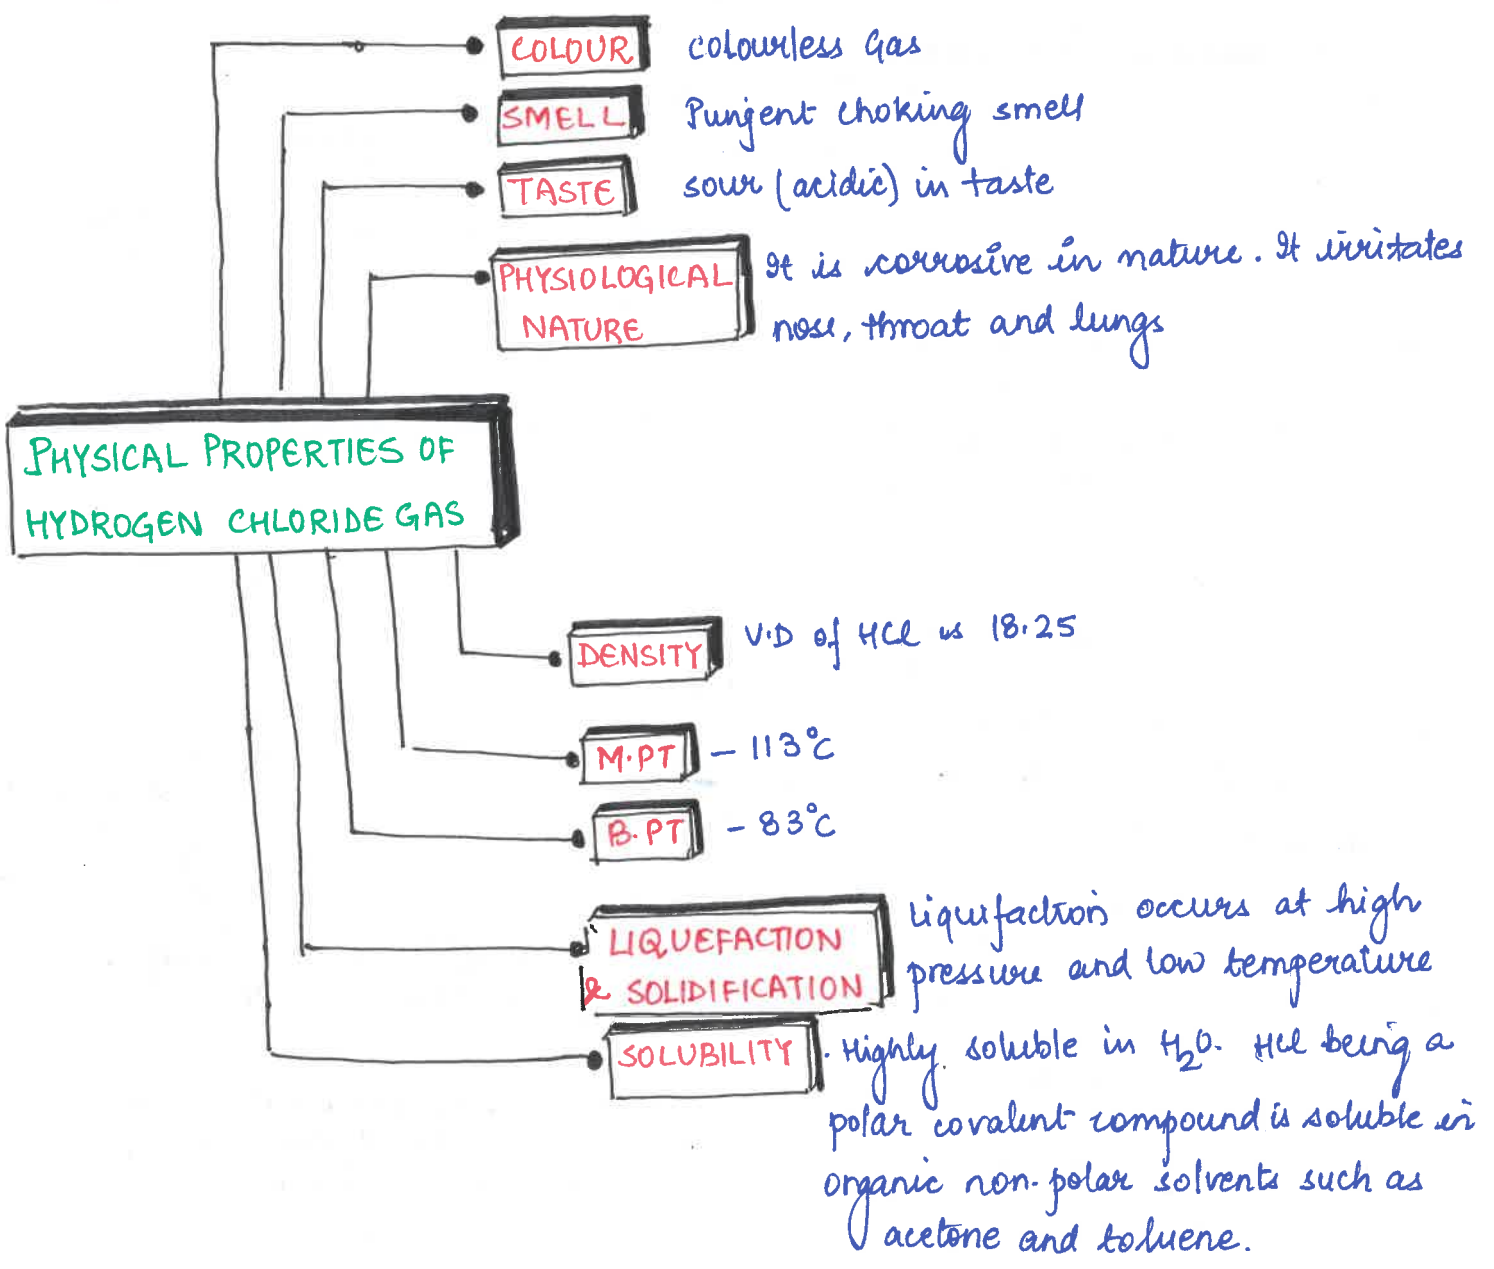 COLOUR colourless Gas
SMELL Punjent choking smell
TASTE sour (acidic) in taste
PHYSIOLOGICAL NATURE It is corrosive in nature. It irritates
nose, throat and lungs
PHYSICAL PROPERTIES OF
HYDROGEN CHLORIDE GAS
DENSITY V.D of HCl is 18.25
M.PT - 113°C
B.PT - 83°C
LIQUEFACTION
& SOLIDIFICATION
Liquifaction occurs at high
pressure and low temperature
SOLUBILITY . Highly soluble in H₂O. HCl being a
polar covalent compound is soluble in
organic non-polar solvents such as
acetone and toluene.